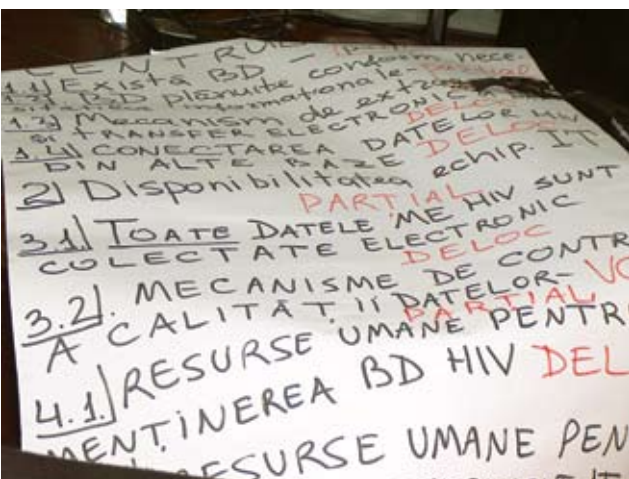 CENTRUL
1.1) Există BD –
1.2) BD planuite conform nece.
informaționale-
1.3) Mecanism de extra
TRANSFER ELECTRONIC
DELOC
1.4) CONECTAREA DATELOR HIV
DIN ALTE BAZE DELOC
2) Disponibilitatea echip. IT
PARTIAL
3.1) TOATE DATELE ME HIV SUNT
COLECTATE ELECTRONIC
DELOC
3.2) MECANISME DE CONTR
A CALITĂȚII DATELOR-
PARTIAL
4.1.) RESURSE UMANE PENTR
MENȚINEREA BD HIV DEL
RESURSE UMANE PEN